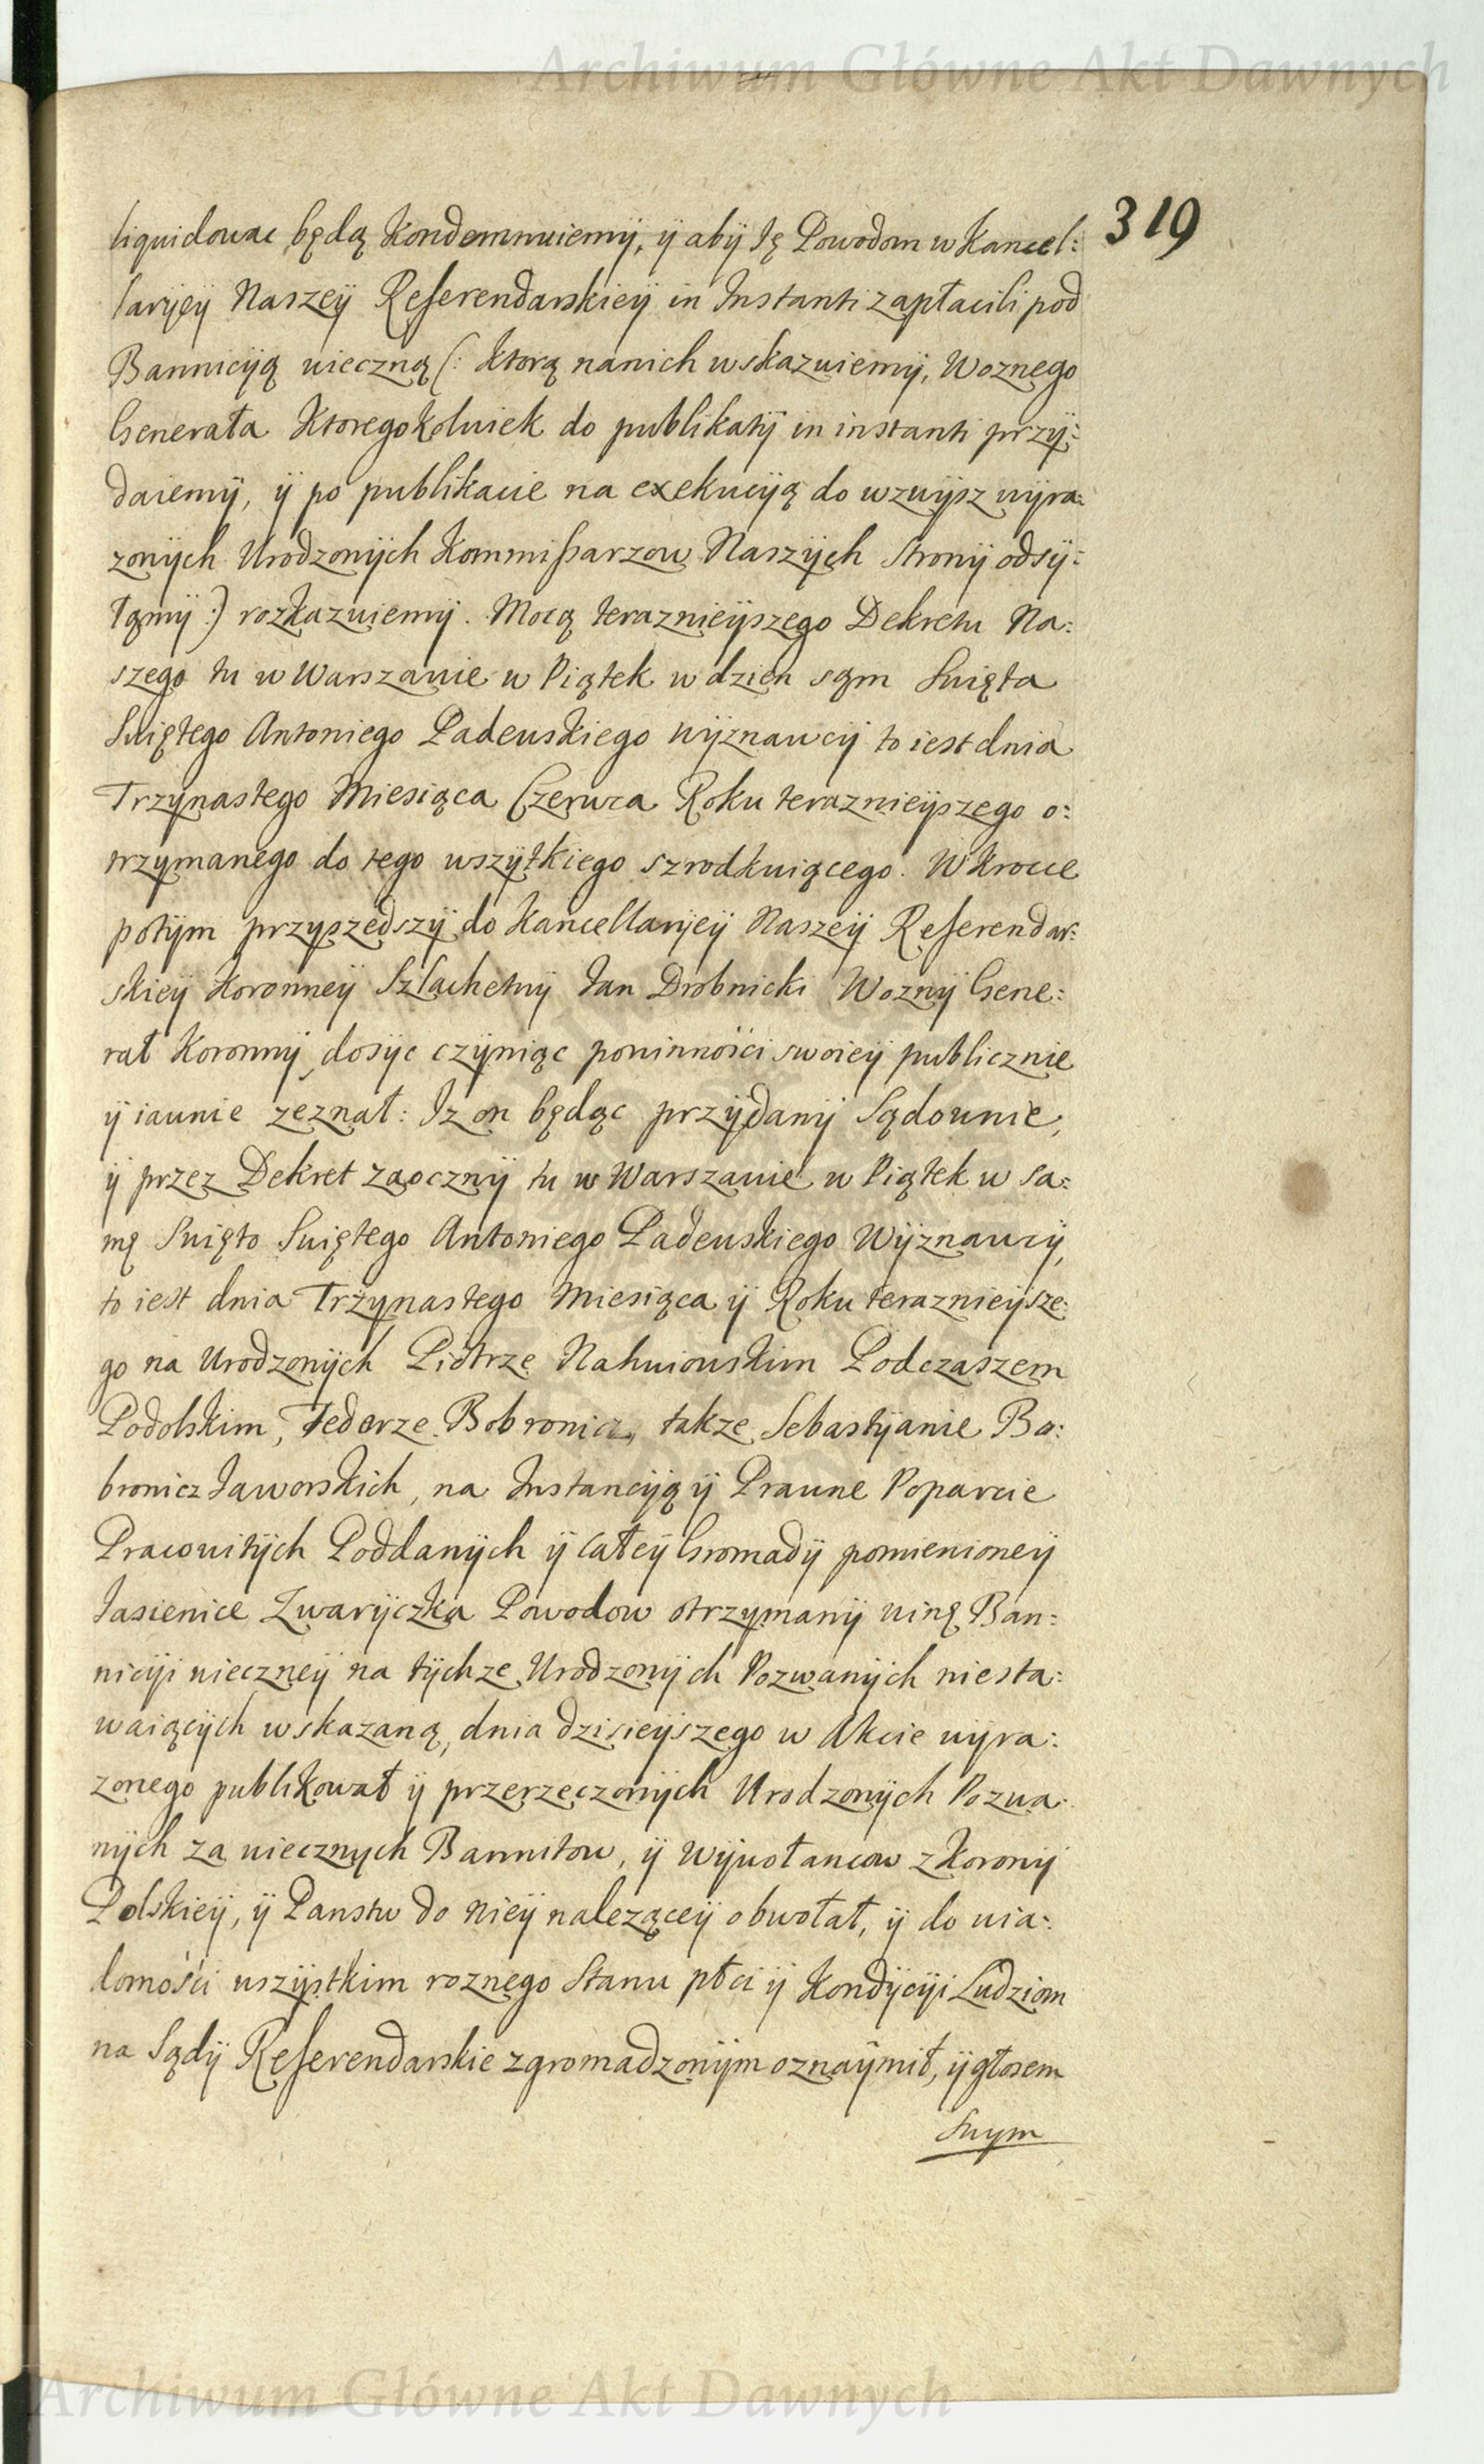 Archiwum Główne Akt Dawnych
319
liquidowac będą kondemnuiemÿ, ÿ abÿ Ię Powodom w Kancel:
larÿeÿ Naszeÿ Referendarskieÿ in Instanti zapłacili pod
Bannicÿą wieczną (: ktorą nanich wskazuiemÿ, Woznego
Generała Ktoregokolwiek do publikatÿ in instanti przÿ:
daiemÿ, ÿ po publikacie na exekucÿą do wzwÿsz wÿra:
zonÿch Urodzonÿch Kommissarzow Naszÿch Stronÿ odsÿ:
łamÿ :) rozkazuiemÿ. Mocą teraznieÿszego Dekretu Na:
szego tu w Warszawie w Piątek w dzien sam Swięta
Swiętego Antoniego Padewskiego wÿznawcÿ to iest dnia
Trzÿnastego Miesiąca Czerwca Roku teraznieÿszego o:
trzymanego do tego wszÿtkiego szrodkuiącego. Wkrotce
potÿm przyszedszÿ do Kancellarÿeÿ Naszeÿ Referendar:
skieÿ Koronneÿ Szlachetnÿ Jan Drobnicki Woznÿ Gene:
rał Koronnÿ dosÿc czÿniąc powinności swoieÿ publicznie
ÿ iawnie zeznał: Iz on będąc przÿdanÿ Sądownie,
ÿ przez Dekret zaocznÿ tu w Warszawie w Piątek w sa:
mę Swięto Swiętego Antoniego Padewskiego Wÿznawcÿ,
to iest dnia Trzÿnastego Miesiąca ÿ Roku teraznieÿsze:
go na Urodzonÿch Piotrze Nahuiowskim Podczaszem
Podolskim, Fedorze Bobronicz, takze Sebastÿanie Bo:
bronicz Jaworskich, na Instancÿą ÿ Prawne Poparcie
Pracowitÿch Poddanÿch ÿ całeÿ Gromadÿ pomienioneÿ
Jasienice Zwarÿczka Powodow otrzymanÿ winę Ban:
nicÿi wieczneÿ na tÿchze Urodzonÿch Pozwanÿch niesta:
waiącÿch wskazaną, dnia dzisieÿszego w Akcie wÿra:
zonego publikował ÿ przerzeczonÿch Urodzonÿch Pozwa:
nÿch za wiecznych Bannitow, ÿ Wÿwołancow z Koronÿ
Polskieÿ, ÿ Panstw do nieÿ naleząceÿ obwołał, ÿ do wia:
domości wszÿstkim roznego Stanu płci ÿ Kondÿcÿi Ludziom
na Sądÿ Referendarskie zgromadzonÿm oznaÿmił, ÿ głosem
Swym
Archiwum Główne Akt Dawnych